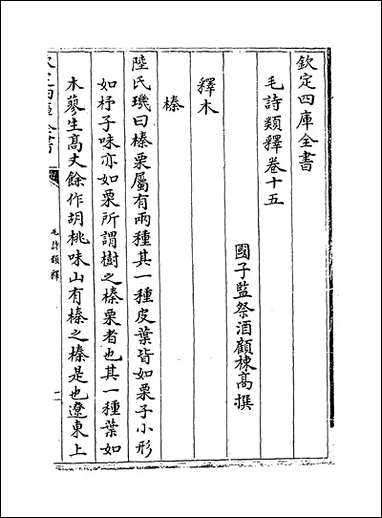 欽定四庫全書
毛詩類釋卷十五
國子監祭酒顧棟高撰
釋木
榛
陸氏璣曰榛栗屬有兩種其一種皮葉皆如栗子小形
如杼子味亦如栗所謂樹之榛栗者也其一種葉如
木蓼生高丈餘作胡桃味山有榛之榛是也遼東上
欽定四庫全書
毛詩類釋